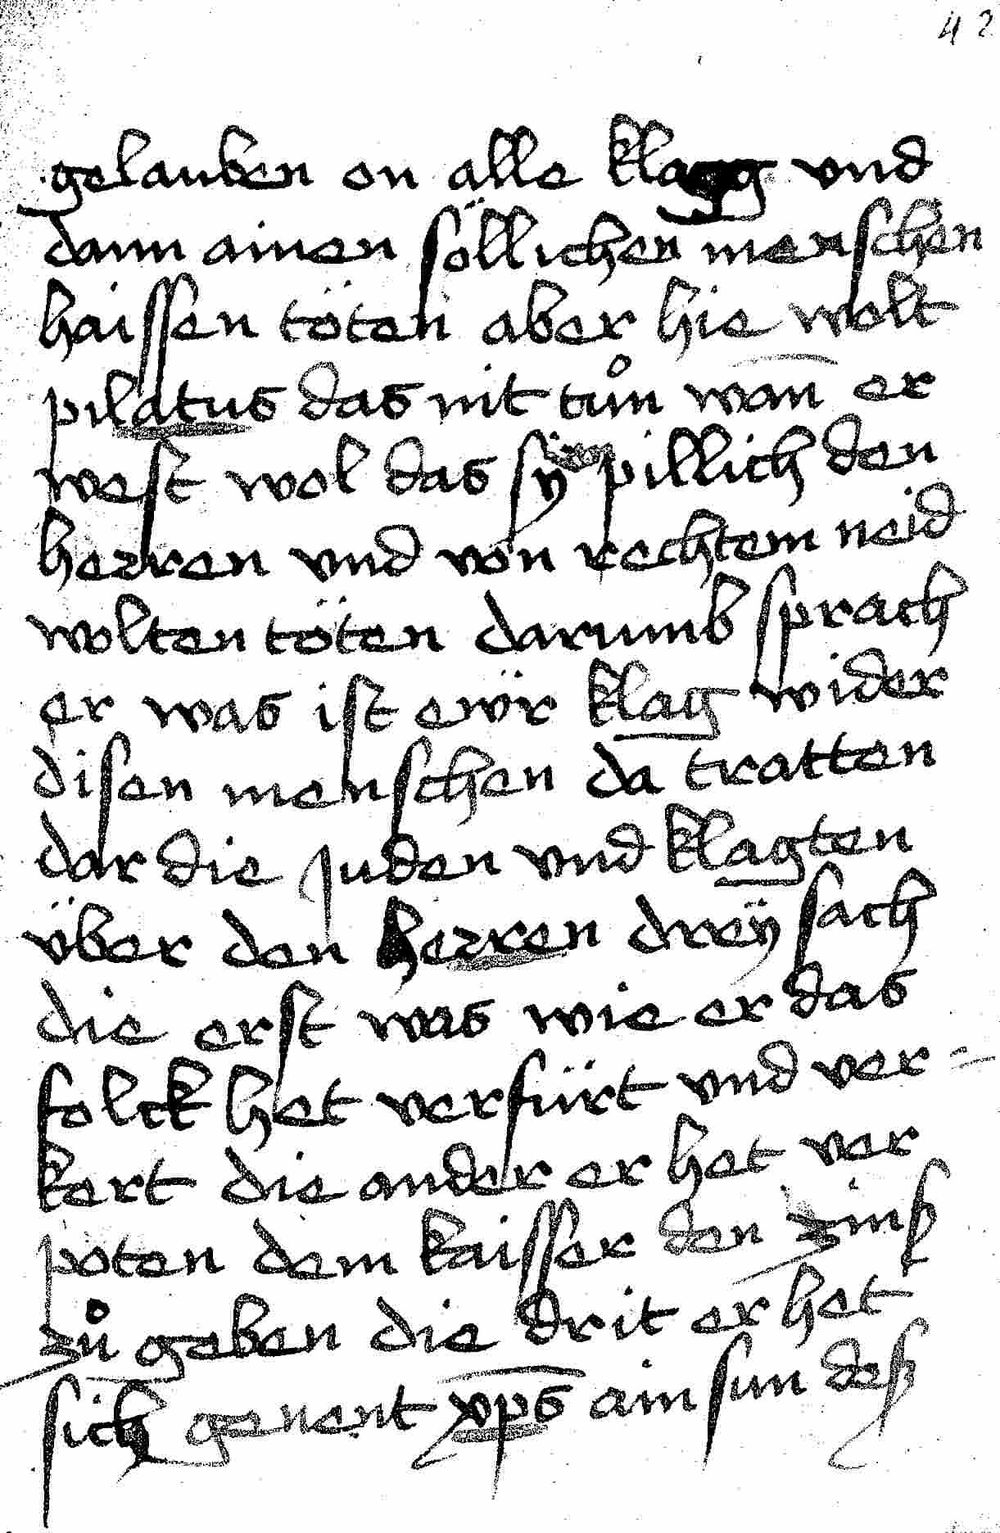 42
gelauben on älle klagg vnd
dann ainen söllichen menschen
haissen töten aber hie wolt
pilatus das nit tůn wan̄ er
west wol das sÿ pillich den
herren vnd von rechtem neid
wolten töten darumb sprach
er was ist ewr̈ klag wider
disen menschen da tratten
dar die Juden vnd klagten
v̈ber den herren dreÿ sach
die erst was wie er das
folck het verfürt vnd ver-
kert die ander er het ver
poten dem kaisser den zinß
zů geben die drit er het
sich genent xp̄s ain sun deß